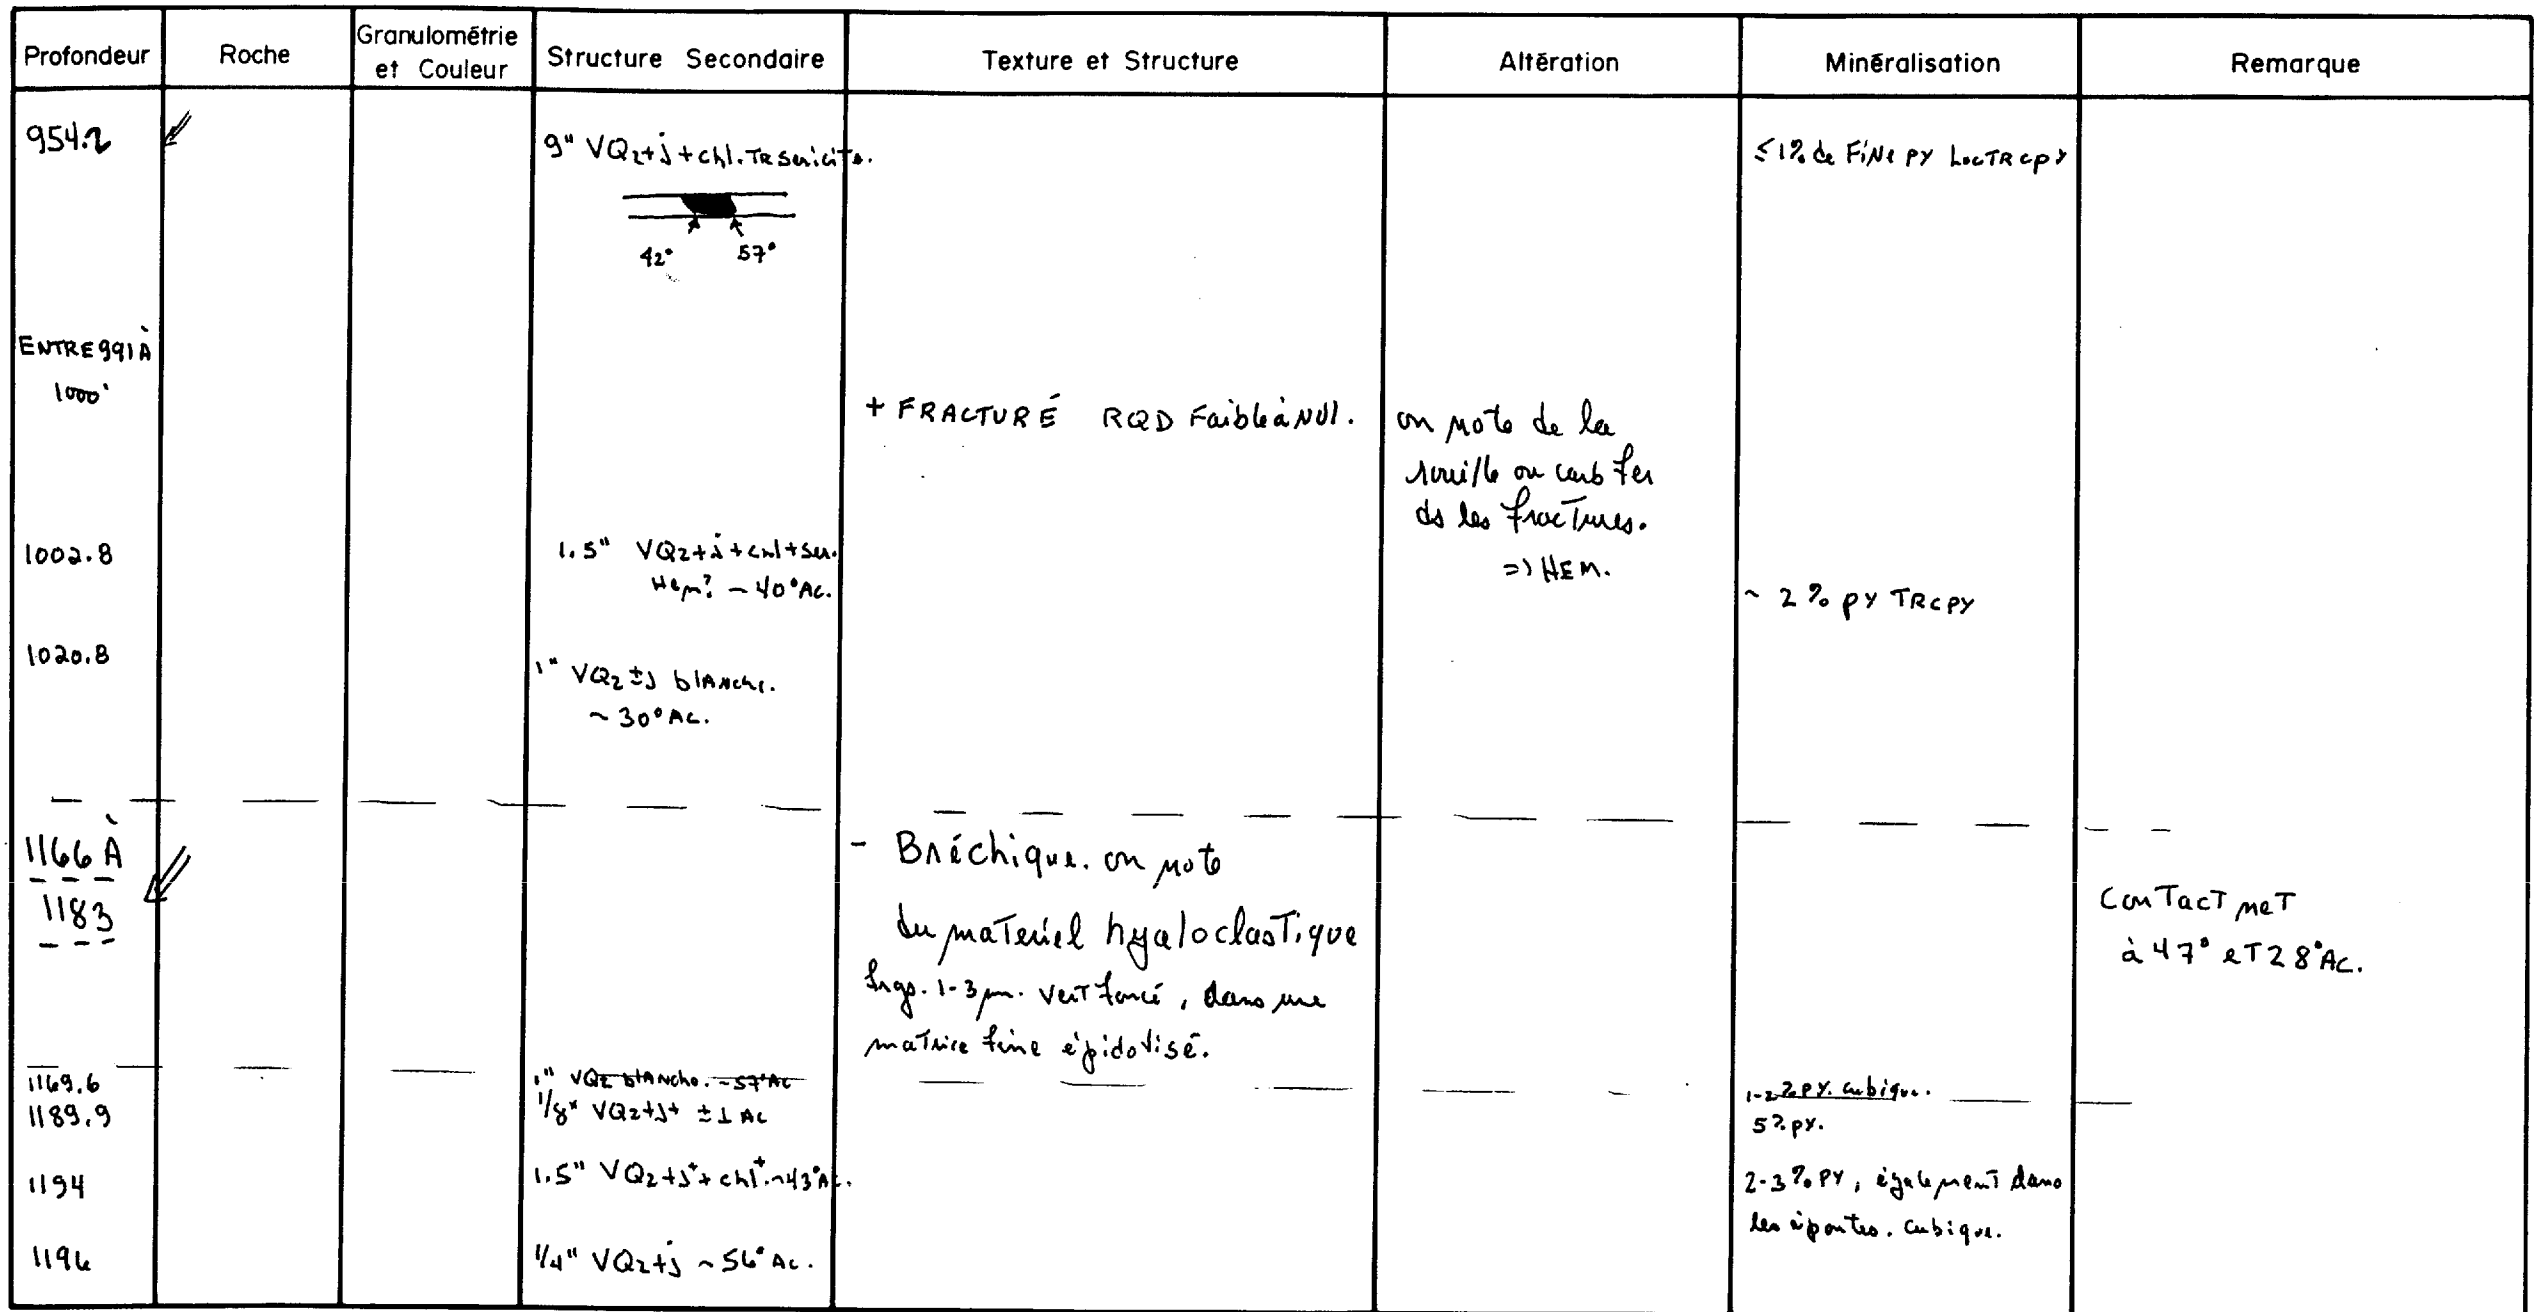 Profondeur Roche Granulométrie et Couleur Structure Secondaire Texture et Structure Altération Minéralisation Remarque
954.2 9" VQz+j+chl. TR sericite. ≤1% de FiNe PY Loc TR cpy
42° 57°
ENTRE 991 À
1000'
+ FRACTURÉ RQD Faible à NUl. on note de la
rouille ou carb fer
ds les fractures.
1002.8 1.5" VQz+j+chl+ser. => HEM.
Hem? ~40°AC. ~ 2% PY TR CPY
1020.8 1" VQz ±j blANche.
~30°AC.
1166 À - Bréchique. on note
1183 du materiel hyaloclastique Contact net
frgs. 1-3 mm. vert foncé, dans une à 47° eT 28°AC.
matrice fine épidotisé.
1169.6 1" VQz blANche. ~57°AC 1-2% PY. cubique.
1189.9 1/8" VQz+j+ ±⊥ AC 5% PY.
1194 1.5" VQz+j+ + chl+. ~43°AC. 2-3% PY, également dans
les épontes. cubique.
1196 1/4" VQz+j ~56°AC.